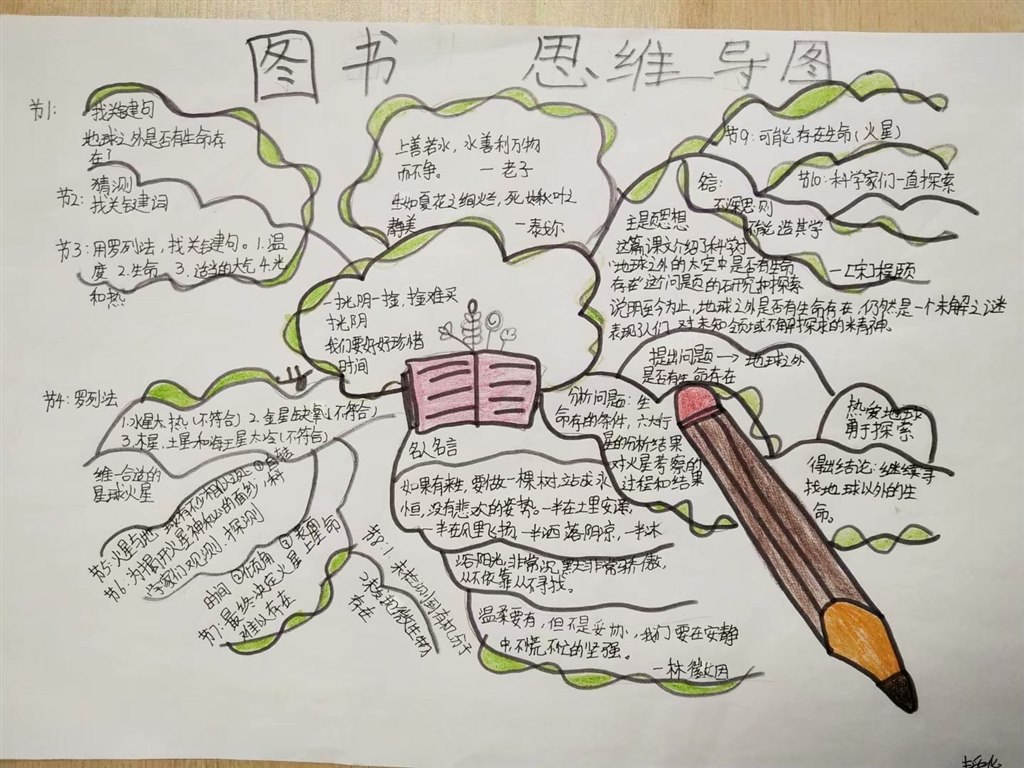 图书 思维导图
节1:
找关键句
地球之外是否有生命存
在?
节2:
猜测
找关键词
节3:用罗列法,找关键句。1.温
度 2.生命 3.适当的大气 4.光
和热
上善若水,水善利万物
而不争。 —老子
生如夏花之绚烂,死如秋叶之
静美 —泰戈尔
节9:可能存在生命(火星)
节10:科学家们一直探索
名言:
不深思则
不能造其学
—[宋]程颐
主题思想
这篇课文介绍了科学对
“地球之外的太空中是否有生命
存在”这个问题的研究和探索
说明至今为止,地球之外是否有生命存在,仍然是一个未解之谜
表现了人们对未知领域不懈探求的精神。
一寸光阴一寸金,寸金难买
寸光阴
我们要好好珍惜
时间
节4:罗列法
1.水星太热(不符合) 2.金星缺氧(不符合)
3.木星、土星和海王星太冷(不符合)
唯一合适的
星球火星
节5:火星与地球有不少相似之处 ①自转
时间 ②倾角 ③
节6:为揭开火星神秘的面纱,科
学家们观测、探测
节7:最终决定火星上生命
难以存在
节8:1.未检测到有机分子
2.未发现微生物
存在
名人名言
如果有来生,要做一棵树,站成永
恒,没有悲欢的姿势。一半在土里安详,
一半在风里飞扬,一半洒落阴凉,一半沐
浴阳光,非常沉默非常骄傲,
从不依靠从不寻找。
温柔要有,但不是妥协,我们要在安静
中,不慌不忙的坚强。
—林徽因
提出问题→地球之外
是否有生命存在
分析问题:生
命存在的条件,六大行
星的分析结果
对火星考察的
过程和结果
热爱地球
勇于探索
得出结论:继续寻
找地球以外的生
命。